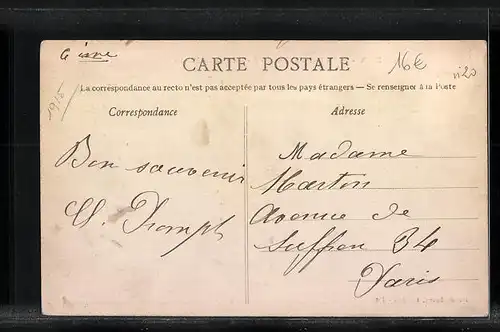 Aisne
CARTE POSTALE
16€
n°20
1915
La correspondance au recto n'est pas acceptée par tous les pays étrangers — Se renseigner à la Poste
Correspondance
Adresse
Bon souvenir
Madame
Marton
Avenue de
Suffren 34
Paris